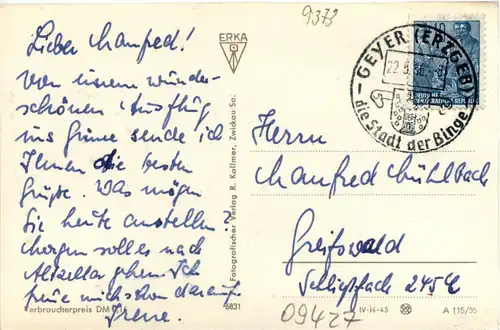 9373
Lieber Manfred!
Von unserem wunder-
schönen Ausflug
ins Grüne sende ich
Ihnen die besten
Grüße. Was mögen
Sie heute anstellen?
Morgen soll es nach
Altzella gehen. Ich
freue mich schon darauf.
Irene.
Verbraucherpreis DM
6831
ERKA
Fotografischer Verlag R. Kallmer, Zwickau Sa.
GEYER (ERZGEB)
22.5.56
die Stadt der Binge
10
DEUTSCHE
DEMOKRATISCHE REPUBLIK
Herrn
Manfred Mühlbach
Greifswald
Schließfach 245
09427
IV-14-45
A 115/55